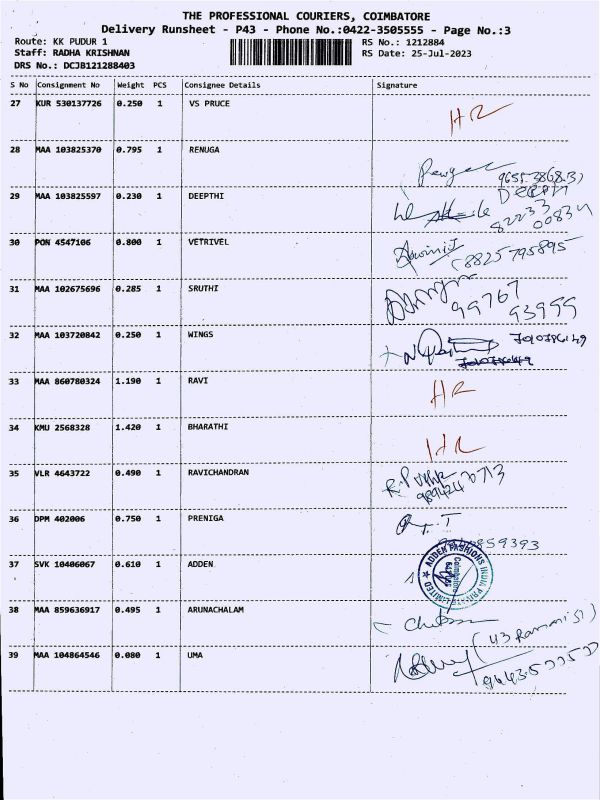 THE PROFESSIONAL COURIERS, COIMBATORE
Delivery Runsheet - P43 - Phone No.:0422-3505555 - Page No.:3
Route: KK PUDUR 1 RS No.: 1212884
Staff: RADHA KRISHNAN RS Date: 25-Jul-2023
DRS No.: DCJB121288403
S No Consignment No Weight PCS Consignee Details Signature
27 KUR 530137726 0.250 1 VS PRUCE
HR
28 MAA 103825370 0.795 1 RENUGA
29 MAA 103825597 0.230 1 DEEPTHI
82233
00834
30 PON 4547106 0.800 1 VETRIVEL
8825795895
31 MAA 102675696 0.285 1 SRUTHI
99767
93999
32 MAA 103720842 0.250 1 WINGS
33 MAA 860780324 1.190 1 RAVI
HR
34 KMU 2568328 1.420 1 BHARATHI
HR
35 VLR 4643722 0.490 1 RAVICHANDRAN
36 DPM 402006 0.750 1 PRENIGA
37 SVK 10406067 0.610 1 ADDEN
ADDEN FASHIONS INDIA PRIVATE LIMITED
Coimbatore
38 MAA 859636917 0.495 1 ARUNACHALAM
39 MAA 104864546 0.080 1 UMA